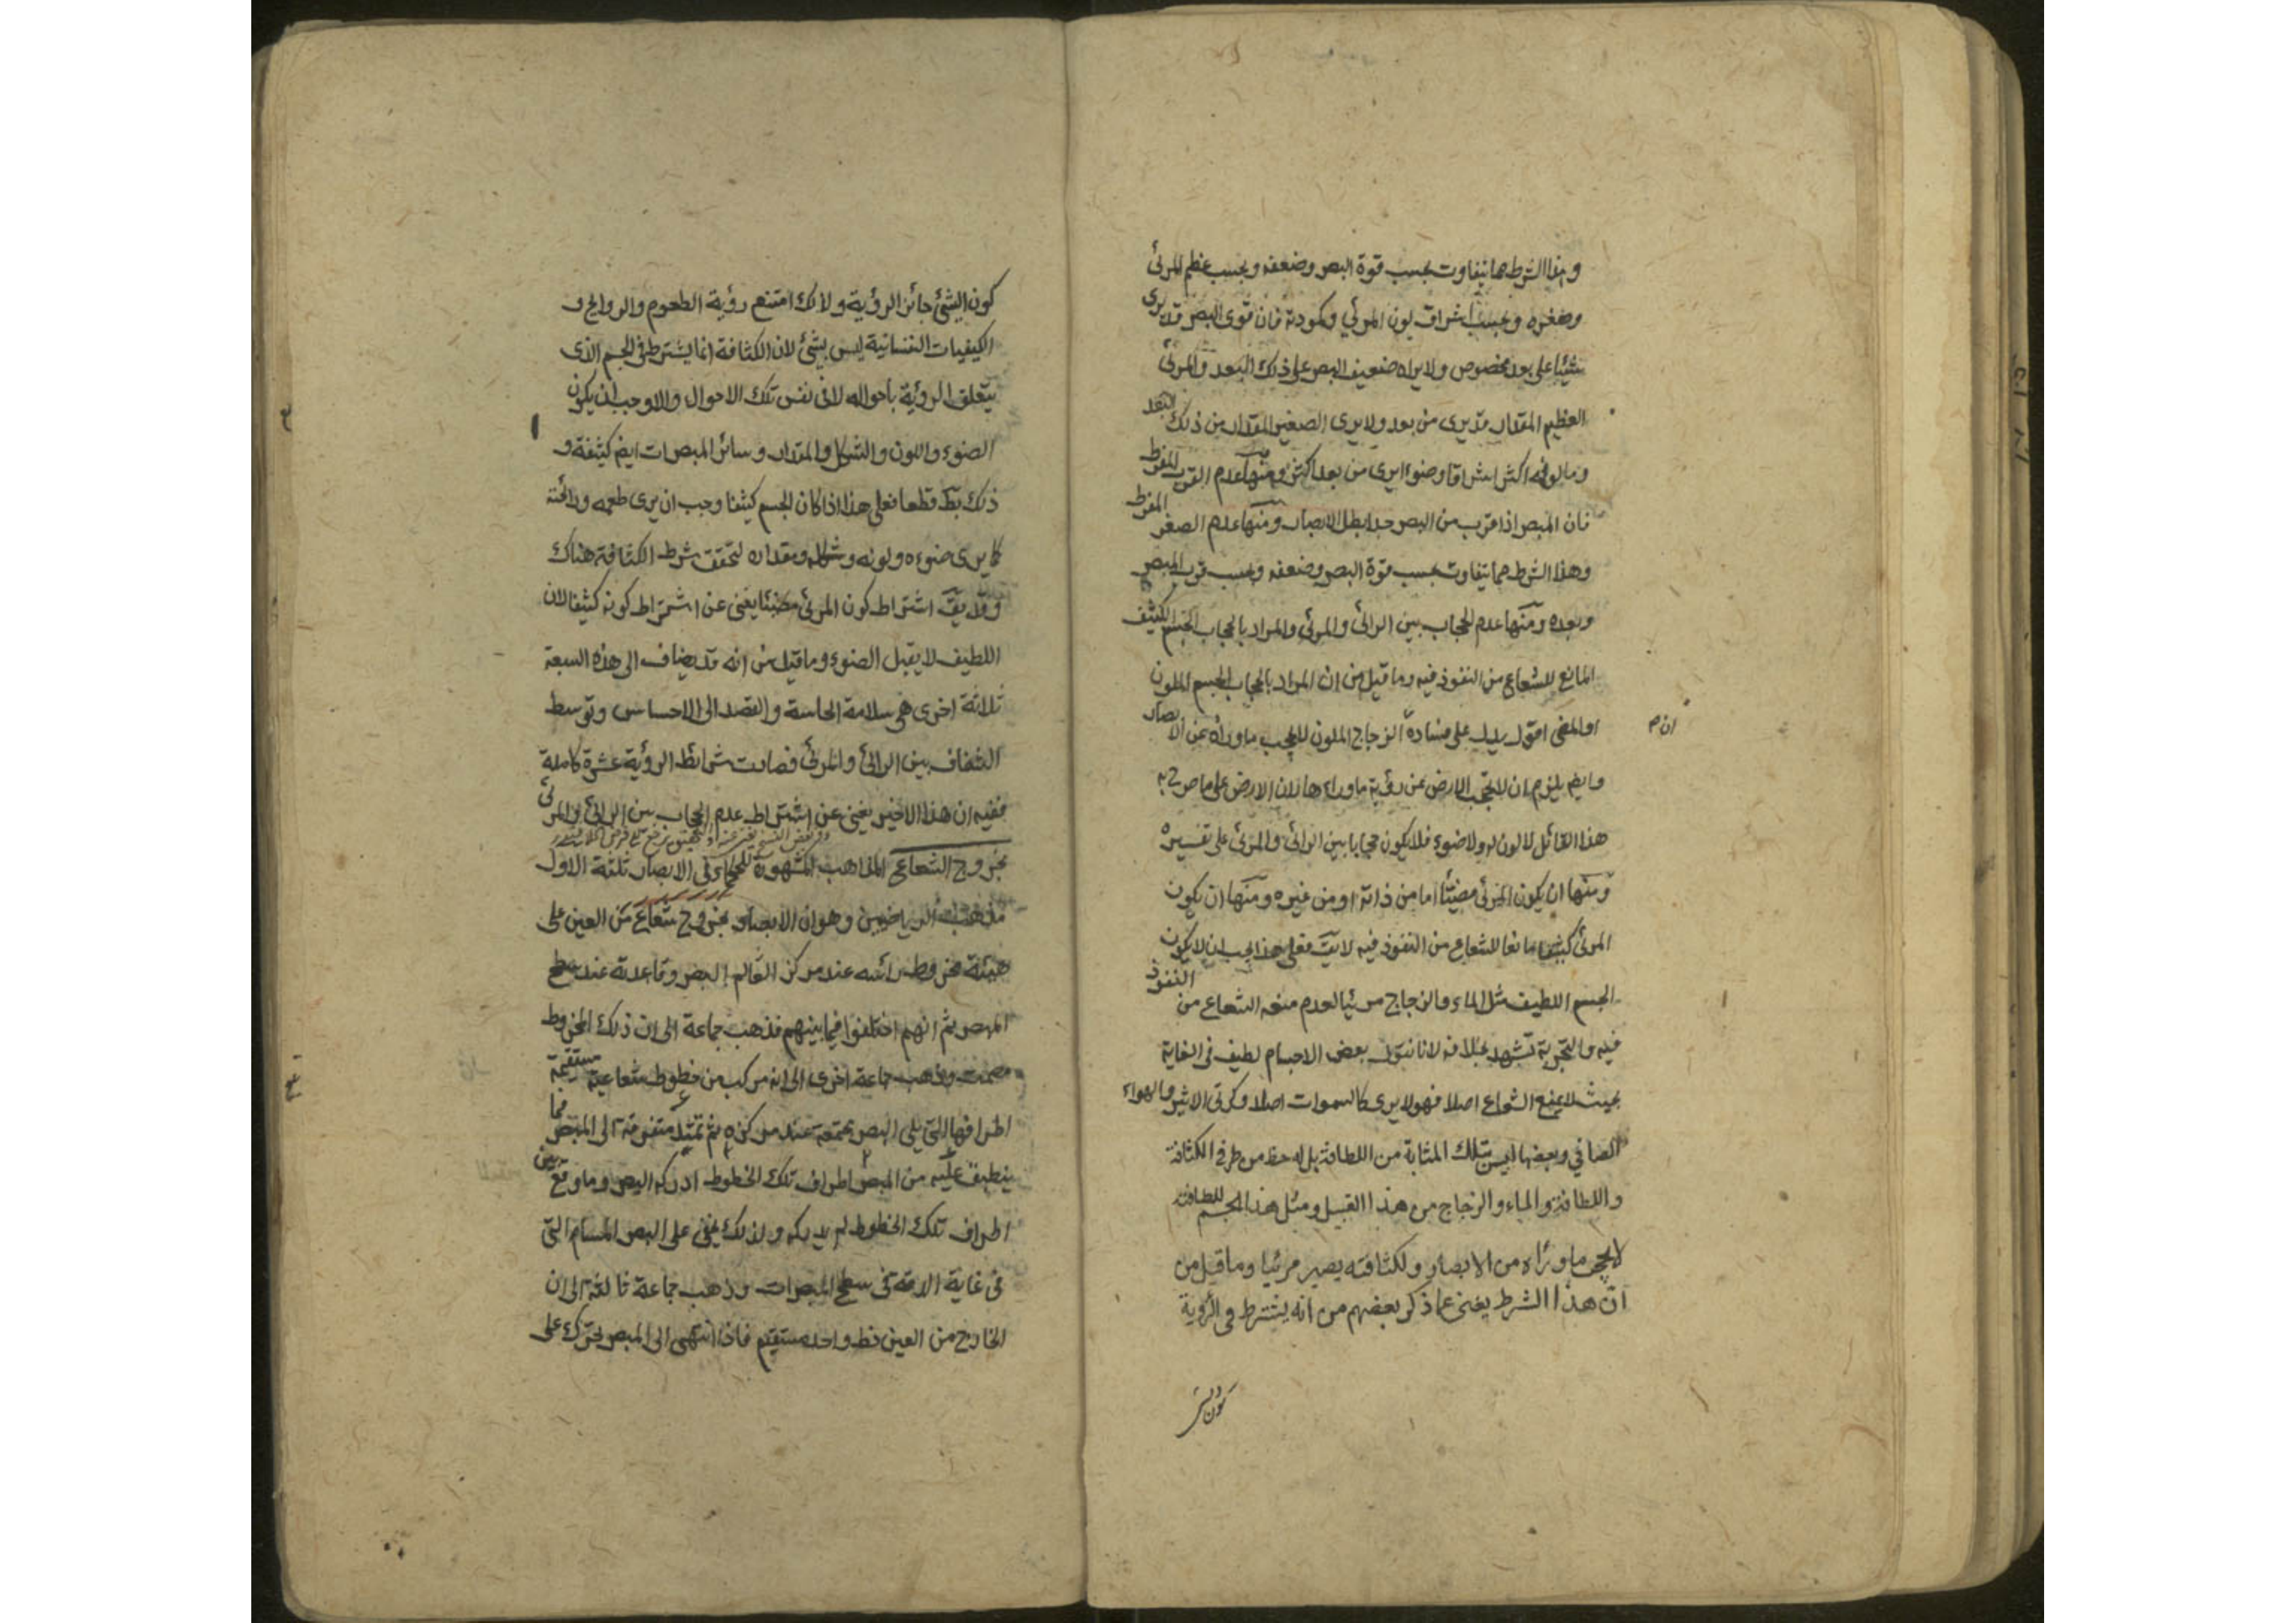 وهذا الشرط مما يتفاوت بحسب قوة البصر وضعفه وبحسب عظم المرئي
وصغره وبحسب اشراق لون المرئي وكمودته فان قوى البصر قد يرى
شيئا على بعد مخصوص ولا يراه ضعيف البصر على ذلك البعد والمرئي
العظيم المقدار قد يرى من بعد ولا يرى الصغير المقدار من ذلك البعد
وما لونه اكثر اشراقا وضوءا يرى من بعد اكثر ومنها عدم القرب المفرط
فان المبصر اذا قرب من البصر جدا بطل الابصار ومنها عدم الصغر المفرط
وهذا الشرط مما يتفاوت بحسب قوة البصر وضعفه وبحسب قرب المبصر
وبعده ومنها عدم الحجاب بين الرائي والمرئي والمراد بالحجاب الجسم الكثيف
المانع للشعاع من النفوذ فيه وما قيل من ان المراد بالحجاب الجسم الملون
او المضى اقول يدل على فساده الزجاج الملون لا يحجب ما وراه عن الابصار
ان م
وايضم يلزم ان لا يحجب الارض عن رؤية ما وراءها لان الارض على ما صرح به
هذا القائل لا لون له ولا ضوء فلا يكون حجابا بين الرائي والمرئي على تفسيره
ومنها ان يكون المرئي مضيئا اما من ذاته او من غيره ومنها ان يكون
المرئي كثيفا مانعا للشعاع من النفوذ فيه لا يقَ فعلى هذا يجب ان لا يكون
الجسم اللطيف مثل الماء والزجاج مرئيا لعدم منعه الشعاع من النفوذ
فيه والتجربة تشهد بخلافه لانا نقول بعض الاجسام لطيف في الغاية
بحيث لا يمنع الشعاع اصلا فهو لا يرى كالسموات اصلا وكرتى الاثير والهواء
الصافي وبعضها ليس بتلك المثابة من اللطافة بل له حظ من طرفي الكثافة
واللطافة والماء والزجاج من هذا القبيل ومثل هذا الجسم للطافته
لا يحجب ما وراءه من الابصار ولكثافته يصير مرئيا وما قيل من
ان هذا الشرط يغنى عما ذكر بعضهم من انه يشترط في الرؤية
كون الشئ
كون الشئ جائز الرؤية ولذلك امتنع رؤية الطعوم والروايح و
الكيفيات النفسانية ليس بشئ لان الكثافة انما يشترط في الجسم الذى
يتعلق الرؤية بأحواله لا في نفس تلك الاحوال والا وجب ان يكون
الضوء واللون والشكل والمقدار وسائر المبصرات ايضم كثيفة و
ذلك بط قطعا فعلى هذا اذا كان الجسم كثيفا وجب ان يرى طعمه ورائحته
كما يرى ضوءه ولونه وشكله ومقداره لتحقق شرط الكثافة هناك
وقد يقَ اشتراط كون المرئي مضيئا يغنى عن اشتراط كونه كثيفا لان
اللطيف لا يقبل الضوء وما قيل من انه قد يضاف الى هذه السبعة
ثلاثة اخرى هي سلامة الحاسة والقصد الى الاحساس وتوسط
الشفاف بين الرائي والمرئي فصارت شرائط الرؤية عشرة كاملة
ففيه ان هذا الاخير يغنى عن اشتراط عدم الحجاب بين الرائي والمرئي
بخروج الشعاع المذاهب المشهورة للحكماء في الابصار ثلثة الاول
مذهب الرياضيين وهو ان الابصار بخروج شعاع من العين على
هيئة مخروط رأسه عند مركز البصر وقاعدته عند سطح
المبصر ثم انهم اختلفوا فيما بينهم فذهب جماعة الى ان ذلك المخروط
مصمت وذهب جماعة اخرى الى انه مركب من خطوط شعاعية مستقيمة
اطرافها التي يلى البصر مجتمعة عند مركزه ثم تمتد متفرقة الى المبصر فما
ينطبق عليه من المبصر اطراف تلك الخطوط ادركه البصر وما وقع بين
اطراف تلك الخطوط لم يدركه ولذلك يخفى على البصر المسام التي
في غاية الدقة في سطح المبصرات وذهب جماعة ثالثة الى ان
الخارج من العين خط واحد مستقيم فاذا انتهى الى المبصر يتحرك على